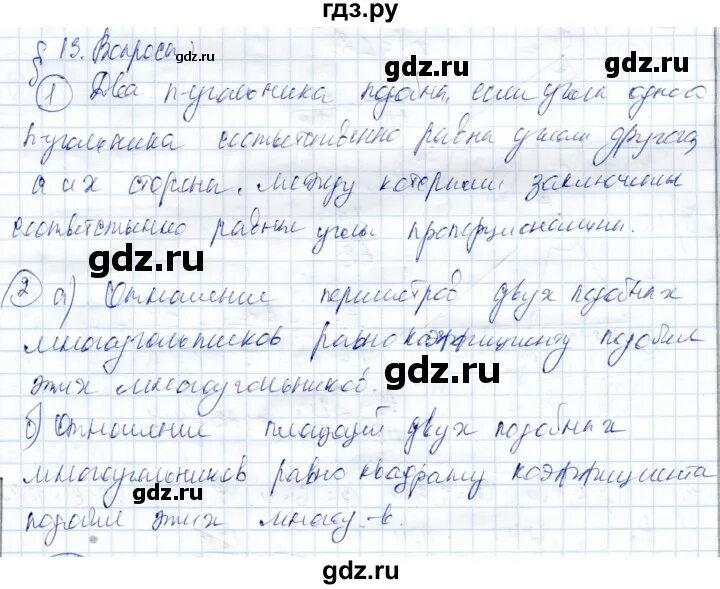 гдз.ру
§ 13. Вопросы
gdz.ru gdz.ru
1 Два n-угольника подобны, если углы одного
n-угольника соответственно равны углам другого,
а их стороны, между которыми заключены
соответственно равные углы пропорциональны.
gdz.ru
2 а) Отношение периметров двух подобных
многоугольников равно коэффициенту подобия
gdz.ru
этих многоугольников.
б) Отношение площадей двух подобных
многоугольников равно квадрату коэффициента
подобия этих многоу-в.
gdz.ru
gdz.ru